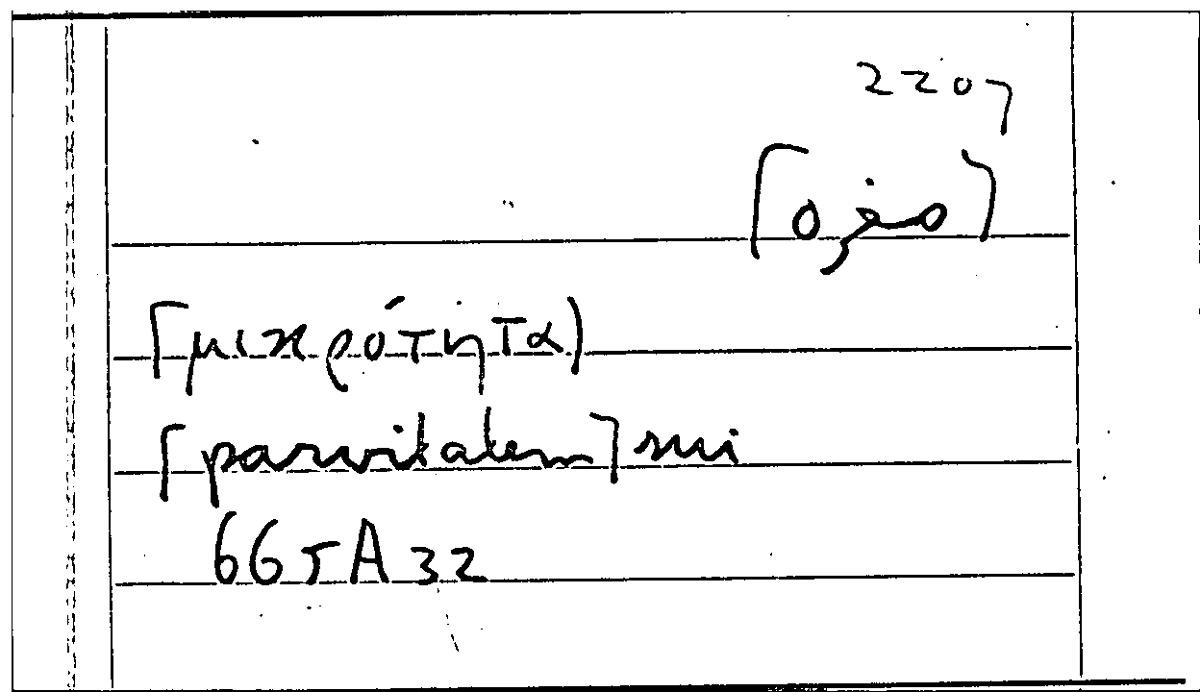 2207
[صغره]
[μικρότητα]
[parvitatem] sui
665A32